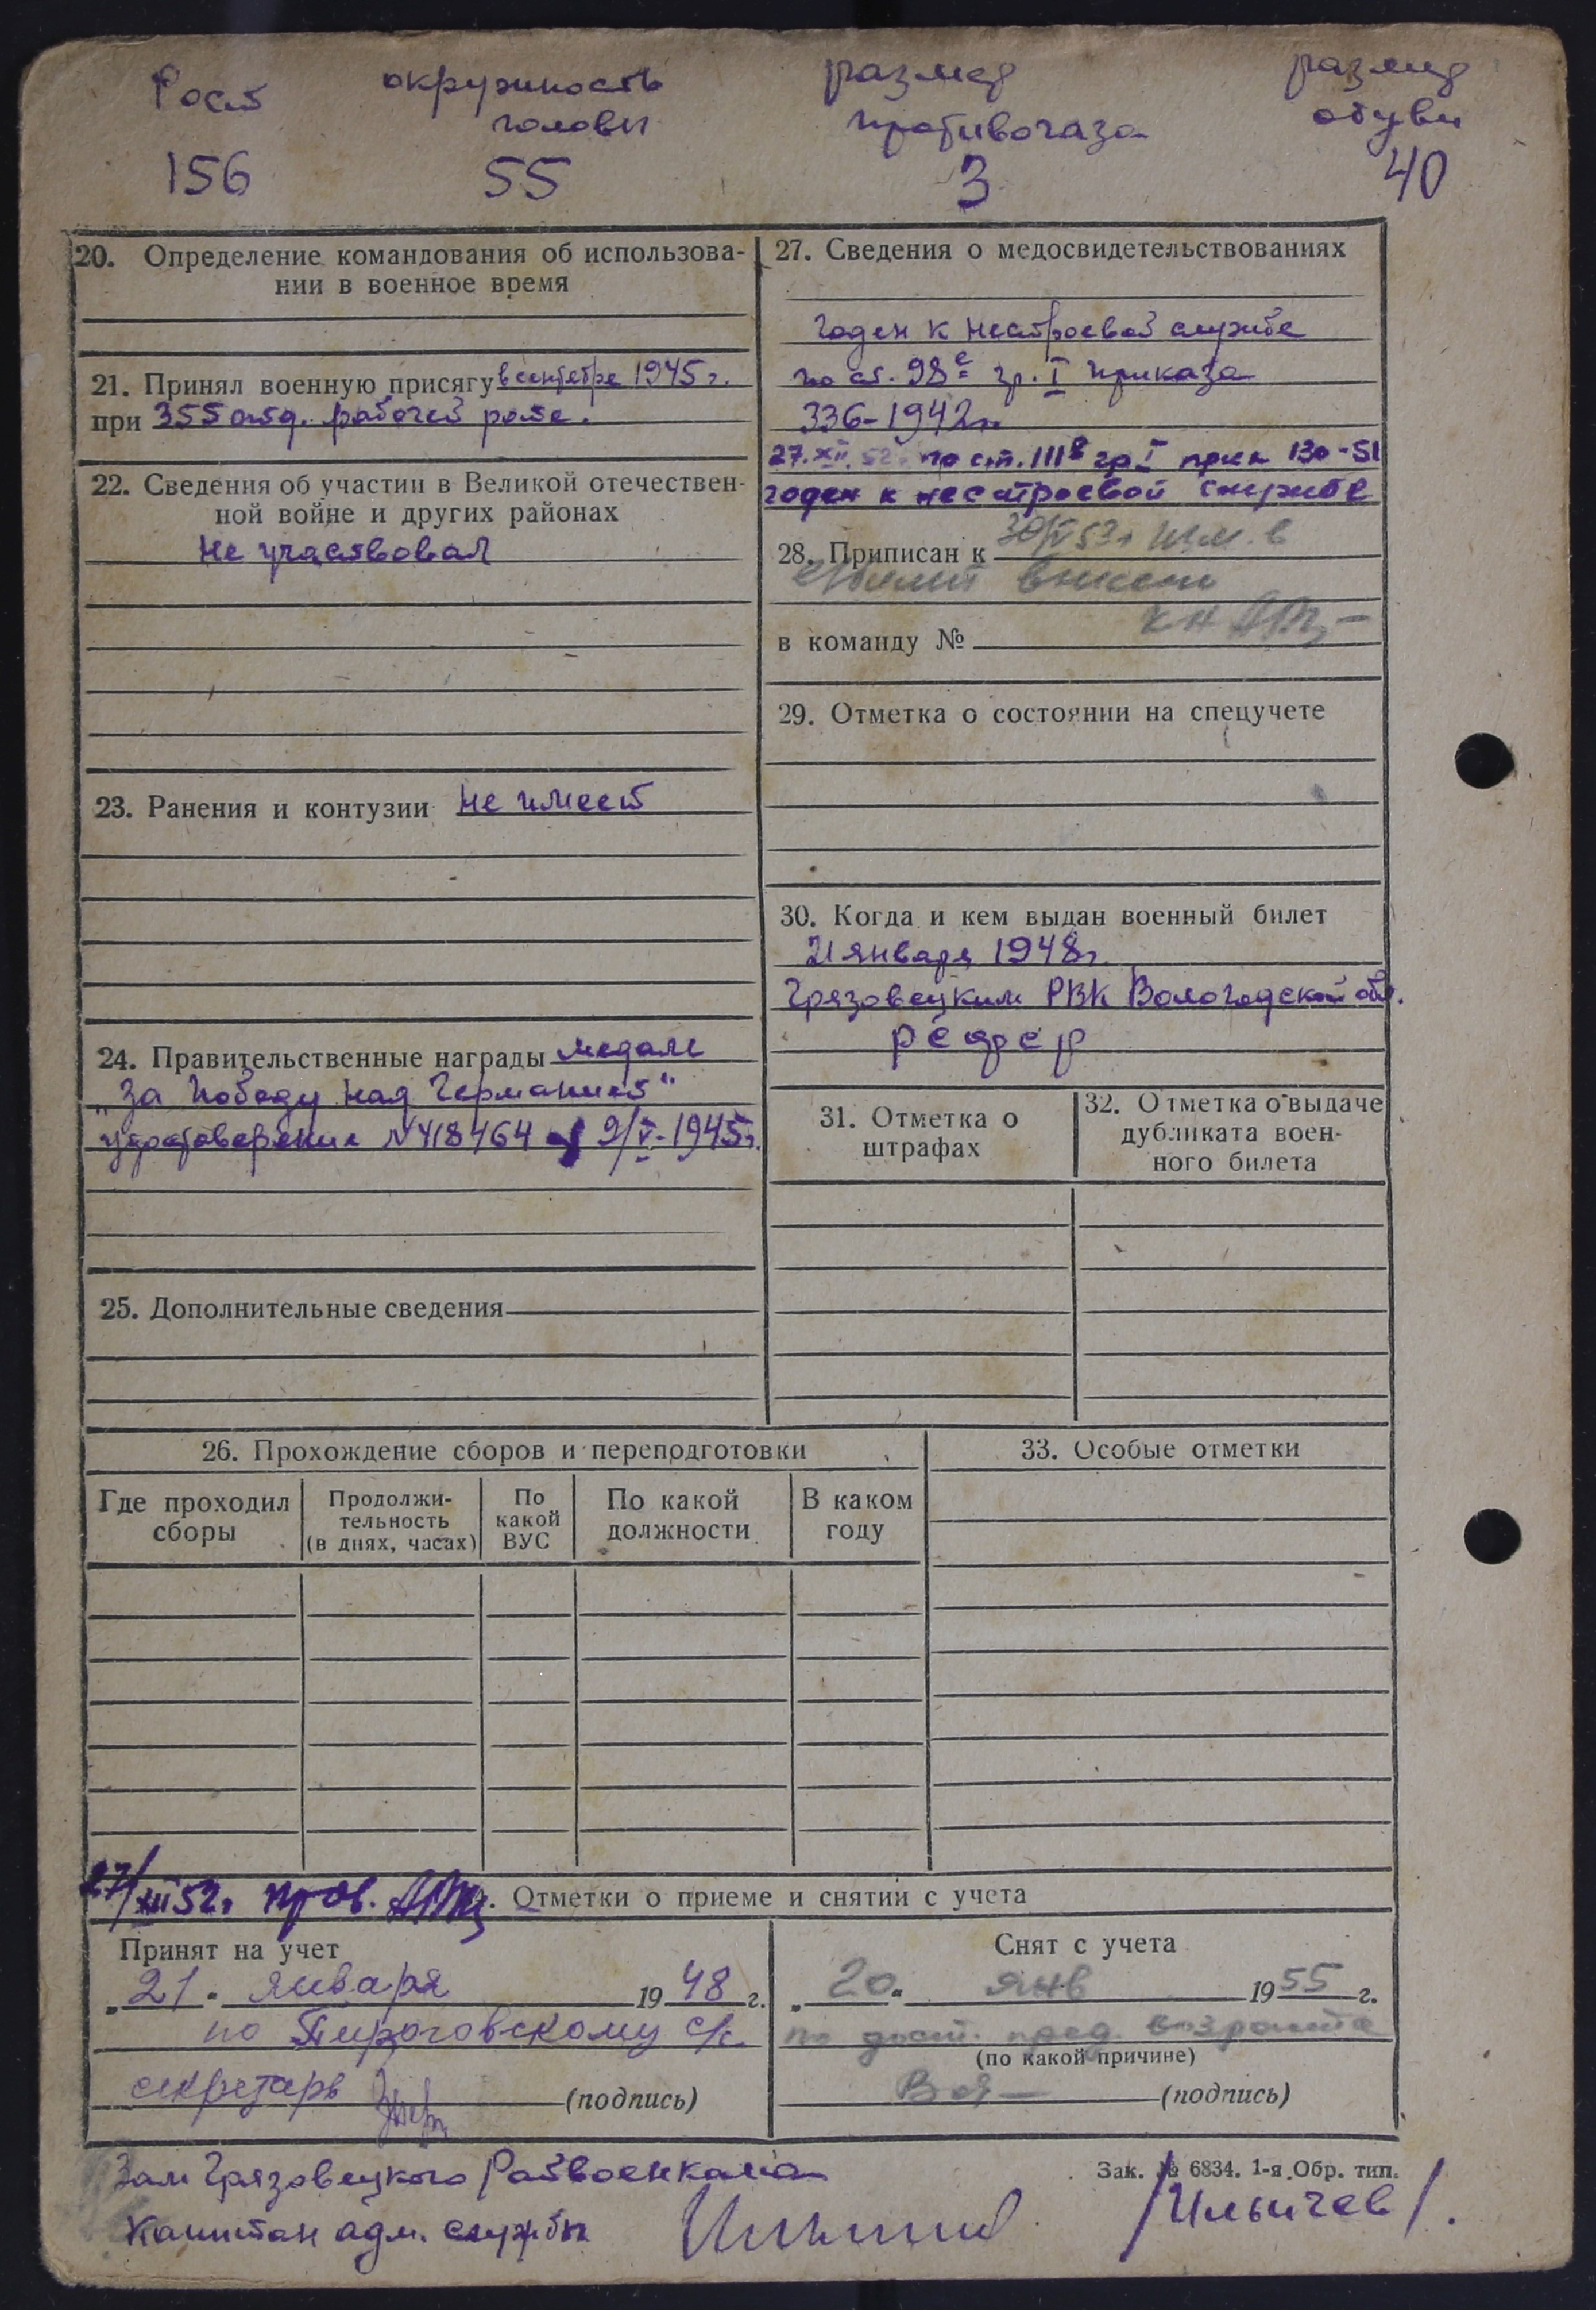 Рост окружность размер размер
головы противогаза обуви
156 55 3 40
20. Определение командования об использова-
нии в военное время
21. Принял военную присягу в сентябре 1945 г.
при 355 отд. рабочей роте.
22. Сведения об участии в Великой отечествен-
ной войне и других районах
Не участвовал
23. Ранения и контузии не имеет
24. Правительственные награды медаль
„За победу над Германией"
удостоверение N 418464 9/V-1945г.
25. Дополнительные сведения
26. Прохождение сборов и переподготовки
Где проходил сборы
Продолжи-
тельность
(в днях, часах)
По
какой
ВУС
По какой
должности
В каком
году
27. Сведения о медосвидетельствованиях
годен к нестроевой службе
по ст. 98е гр. I приказа
336-1942г.
27.XII.52г. по ст. 111в гр I прик 130-51
годен к нестроевой службе
28. Приписан к 30/IV 53г
в команду №
29. Отметка о состоянии на спецучете
30. Когда и кем выдан военный билет
21 января 1948г.
Грязовецким РВК Вологодской обл.
31. Отметка о
штрафах
32. Отметка о выдаче
дубликата воен-
ного билета
33. Особые отметки
27/XII 52г пров. Отметки о приеме и снятии с учета
Принят на учет
„21" января 1948 г.
по Пироговскому с/с.
секретарь (подпись)
Снят с учета
„20" янв 1955 г.
по дост. пред. возраста
(по какой причине)
(подпись)
Зам Грязовецкого Райвоенкома
Капитан адм. службы /Ильичев/.
Зак. № 6834. 1-я Обр. тип.